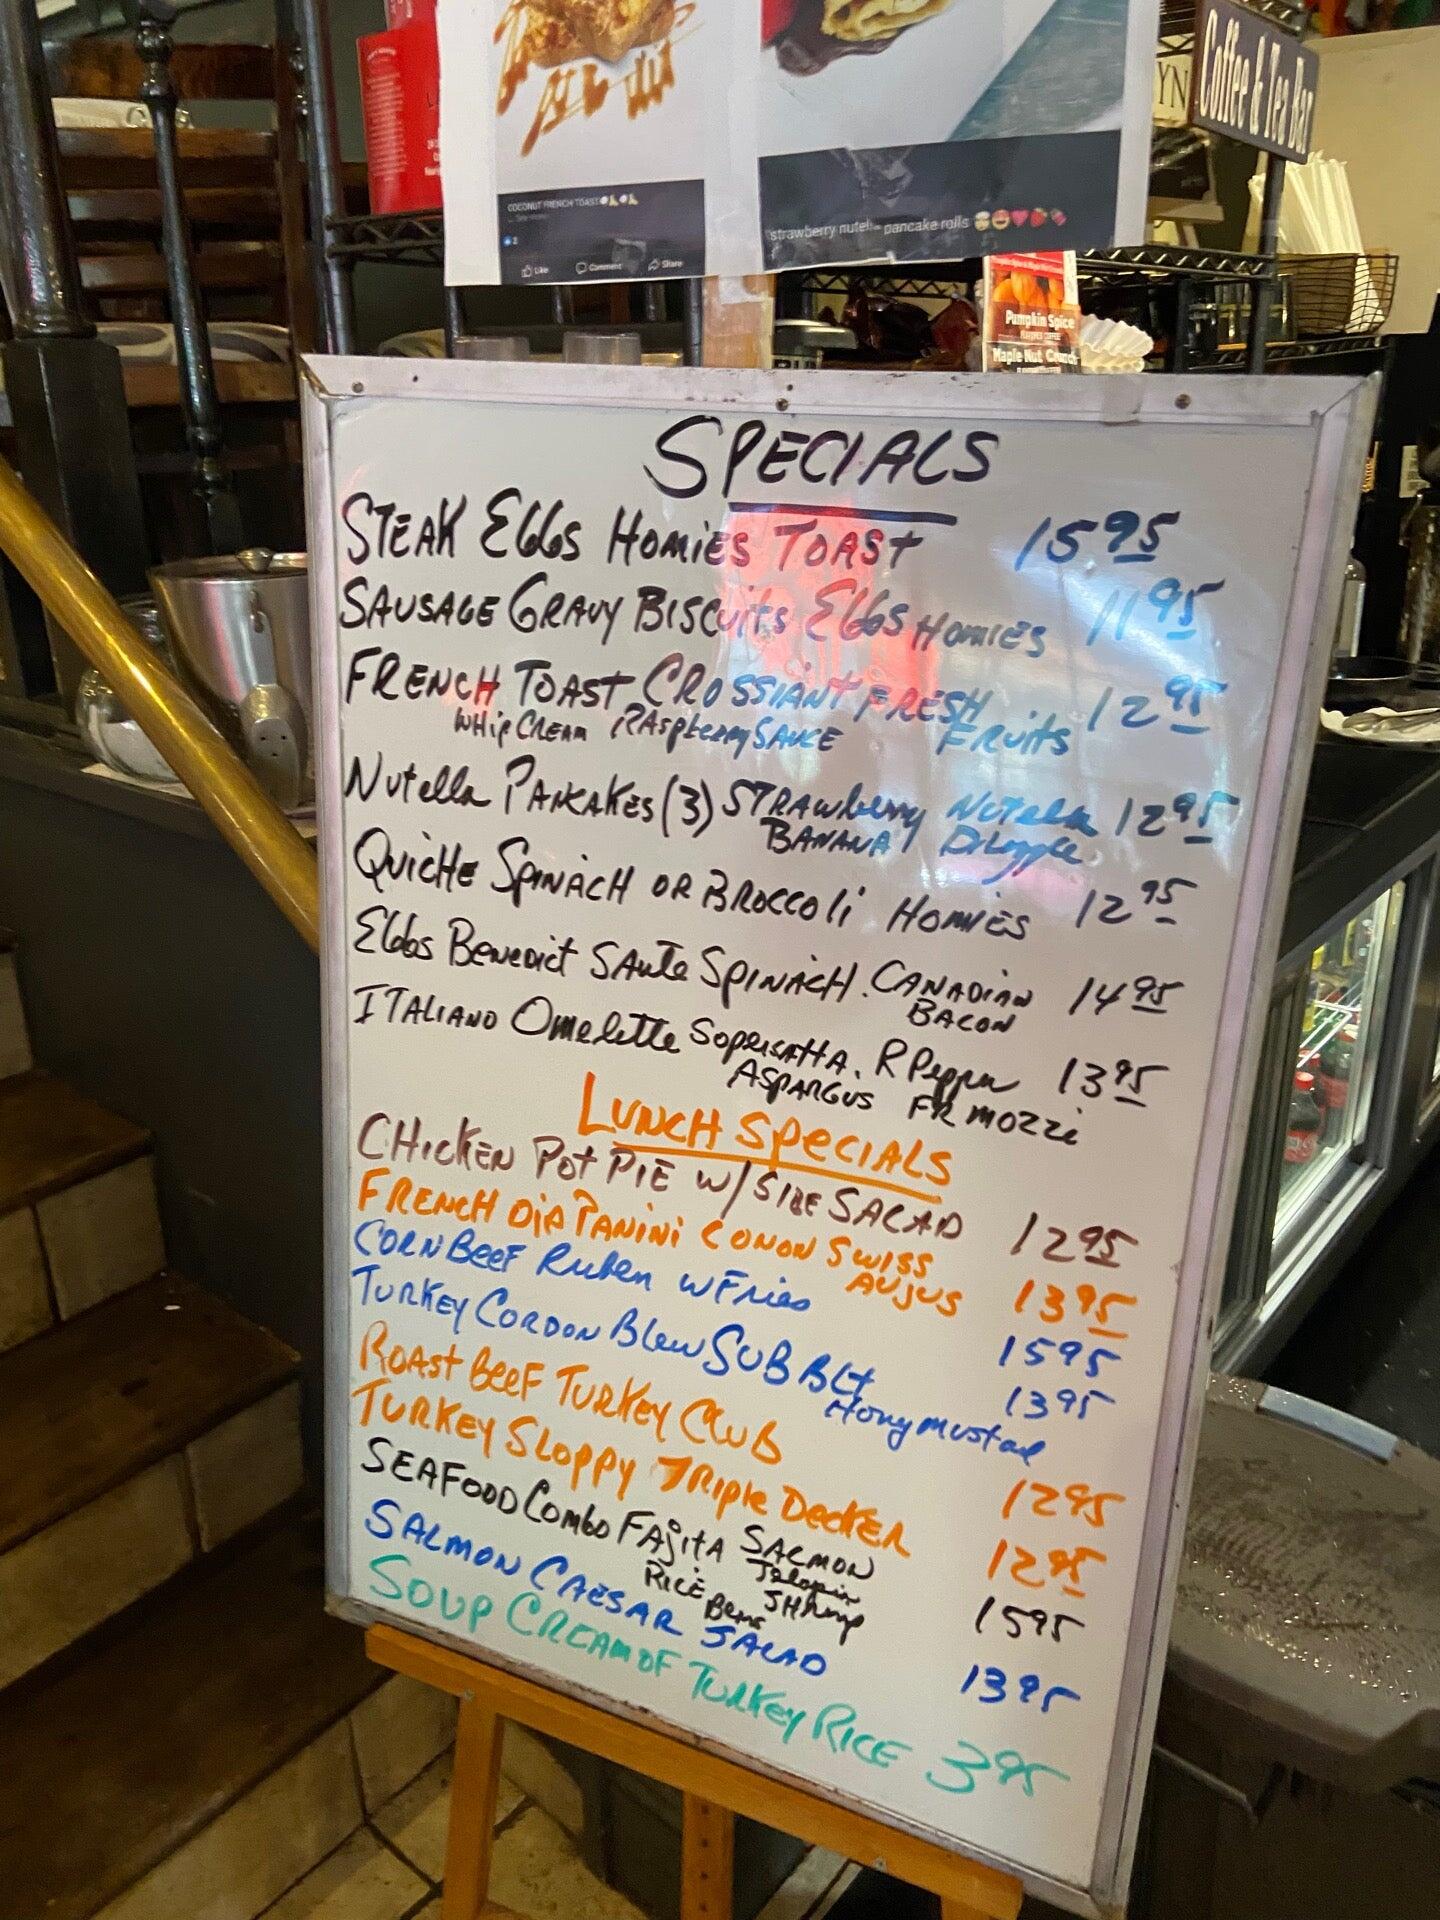 Coffee & Tea Bar
YN
COCONUT FRENCH TOAST
Like Comment Share
strawberry nutella pancake rolls
Pumpkin Spice
Maple Nut Crunch
SPECIALS
STEAK EGGS HOMIES TOAST 15 95
SAUSAGE GRAVY BISCUITS EGGS HOMIES 11 95
FRENCH TOAST CROSSIANT FRESH FRUITS 12 95
WHIP CREAM RASPBERRY SAUCE
Nutella PANCAKES (3) STRAWberry NuTella 12 95
BANANA Drizzle
QUICHE SPINACH OR BROCCOLI HOMIES 12 95
EGGS BENEDICT SAUTE SPINACH. CANADIAN BACON 14 95
ITALIANO Omelette SOPRESATTA. R Pepper 13 95
ASPARGUS FR MOZZi
LUNCH SPECIALS
CHICKEN POT PIE W/SIDE SALAD 12 95
FRENCH DiA PANINI CONON SWISS AUJUS 13 95
CORN BEEF Ruben w Fries 15 95
TURKEY CORDON Bleu SUB BLT 13 95
Hony mustard
ROAST BEEF TURKEY CLUB 12 95
TURKEY SLOPPY TRIPLE DECKER 12 95
SEAFOOD Combo FAJITA SALMON 15 95
SHrimp
RICE Bens
SALMON CAESAR SALAD 13 95
SOUP CREAM OF TURKEY RICE 3 95